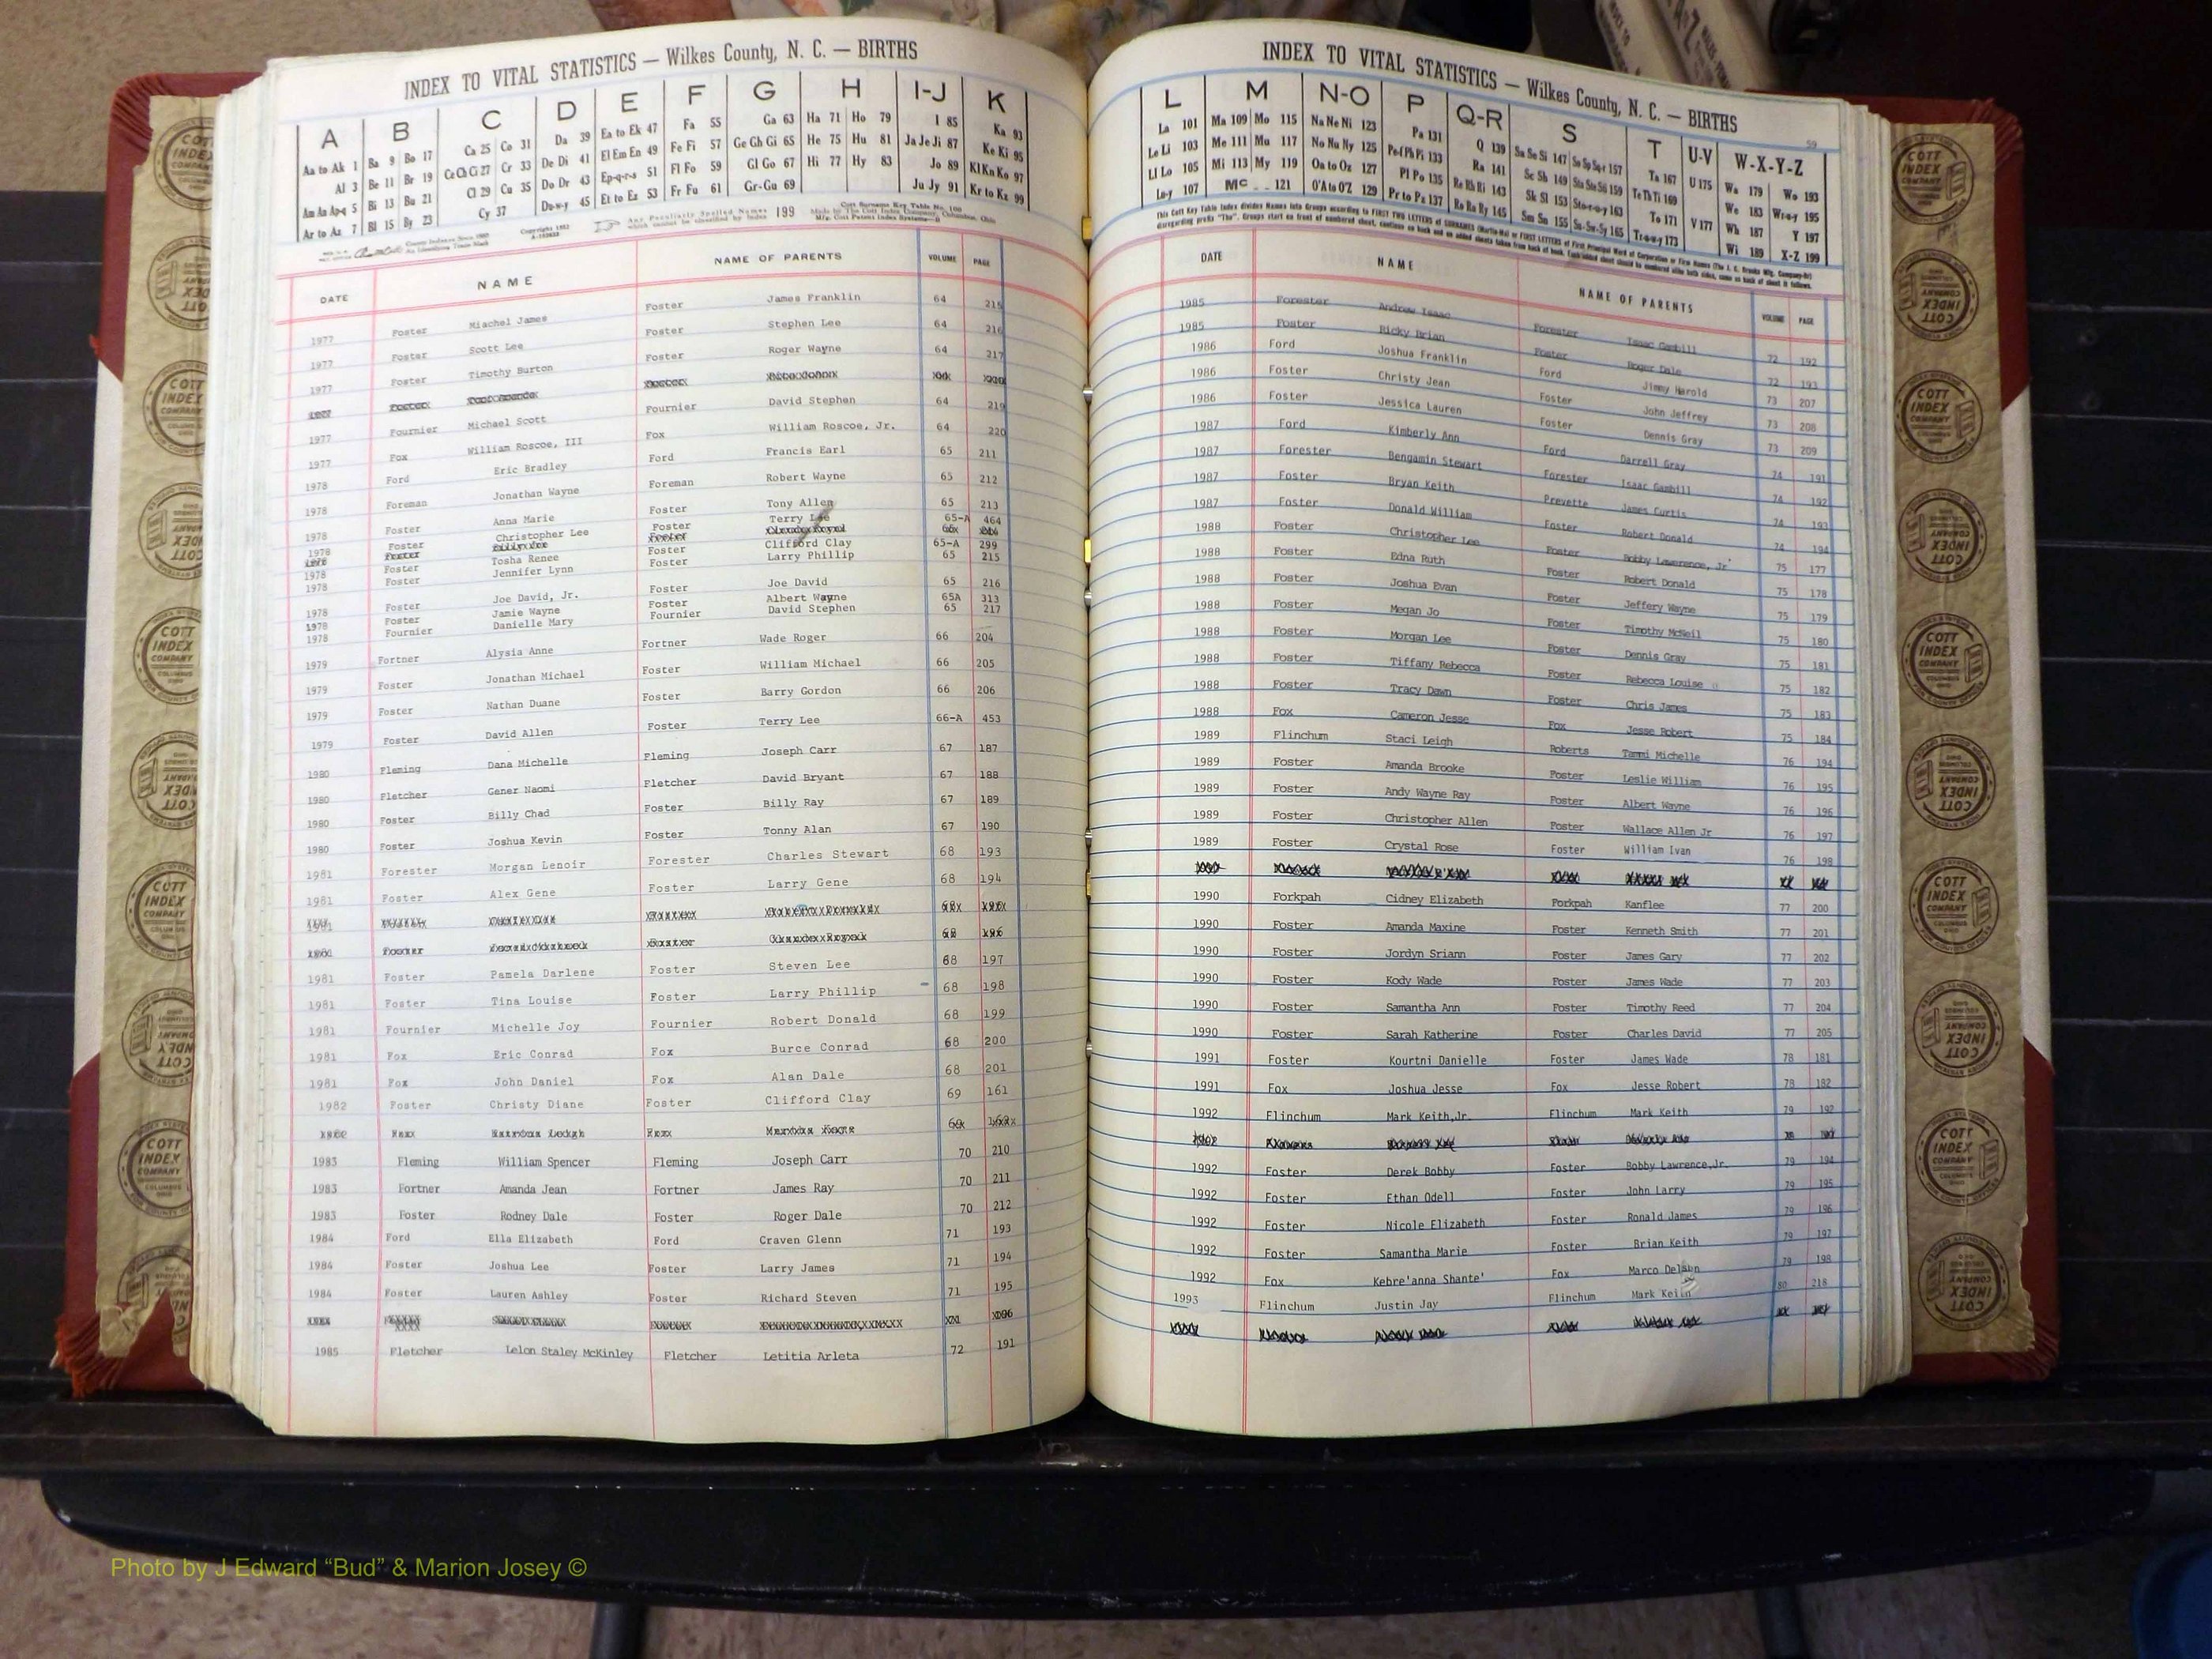 INDEX TO VITAL STATISTICS — Wilkes County, N. C. — BIRTHS
A B C D E F G H I-J K
Aa to Ak 1 Ba 9 Bo 17 Ca 25 Co 31 Da 39 Ea to Ek 47 Fa 55 Ga 63 Ha 71 Ho 79 I 85 Ka 93
Al 3 Be 11 Br 19 Ce Ch Ci 27 Cr 33 De Di 41 El Em En 49 Fe Fi 57 Ge Gh Gi 65 He 75 Hu 81 Ja Je Ji 87 Ke Ki 95
Am An Ap-q 5 Bi 13 Bu 21 Cl 29 Cu 35 Do Dr 43 Ep-q-r-s 51 Fl Fo 59 Gl Go 67 Hi 77 Hy 83 Jo 89 Kl Kn Ko 97
Ar to Az 7 Bl 15 By 23 Cy 37 Du-w-y 45 Et to Ez 53 Fr Fu 61 Gr-Gu 69 Ju Jy 91 Kr to Kz 99
Any Peculiarly Spelled Names which cannot be classified by Index 199
DATE NAME NAME OF PARENTS VOLUME PAGE
1977 Foster Miachel James Foster James Franklin 64 215
1977 Foster Scott Lee Foster Stephen Lee 64 216
1977 Foster Timothy Burton Foster Roger Wayne 64 217
1977 Fournier Michael Scott Fournier David Stephen 64 219
1977 Fox William Roscoe, III Fox William Roscoe, Jr. 64 220
1978 Ford Eric Bradley Ford Francis Earl 65 211
1978 Foreman Jonathan Wayne Foreman Robert Wayne 65 212
1978 Foster Anna Marie Foster Tony Allen 65 213
1978 Foster Christopher Lee Foster Terry Lee 65-A 464
1978 Foster Tosha Renee Foster Clifford Clay 65-A 299
1978 Foster Jennifer Lynn Foster Larry Phillip 65 215
1978 Foster Joe David, Jr. Foster Joe David 65 216
1978 Foster Jamie Wayne Foster Albert Wayne 65A 313
1978 Fournier Danielle Mary Fournier David Stephen 65 217
1979 Fortner Alysia Anne Fortner Wade Roger 66 204
1979 Foster Jonathan Michael Foster William Michael 66 205
1979 Foster Nathan Duane Foster Barry Gordon 66 206
1979 Foster David Allen Foster Terry Lee 66-A 453
1980 Fleming Dana Michelle Fleming Joseph Carr 67 187
1980 Fletcher Gener Naomi Fletcher David Bryant 67 188
1980 Foster Billy Chad Foster Billy Ray 67 189
1980 Foster Joshua Kevin Foster Tonny Alan 67 190
1981 Forester Morgan Lenoir Forester Charles Stewart 68 193
1981 Foster Alex Gene Foster Larry Gene 68 194
1981 Foster Pamela Darlene Foster Steven Lee 68 197
1981 Foster Tina Louise Foster Larry Phillip 68 198
1981 Fournier Michelle Joy Fournier Robert Donald 68 199
1981 Fox Eric Conrad Fox Burce Conrad 68 200
1981 Fox John Daniel Fox Alan Dale 68 201
1982 Foster Christy Diane Foster Clifford Clay 69 161
1983 Fleming William Spencer Fleming Joseph Carr 70 210
1983 Fortner Amanda Jean Fortner James Ray 70 211
1983 Foster Rodney Dale Foster Roger Dale 70 212
1984 Ford Ella Elizabeth Ford Craven Glenn 71 193
1984 Foster Joshua Lee Foster Larry James 71 194
1984 Foster Lauren Ashley Foster Richard Steven 71 195
1985 Fletcher Lelon Staley McKinley Fletcher Letitia Arleta 72 191
INDEX TO VITAL STATISTICS — Wilkes County, N. C. — BIRTHS
59
L M N-O P Q-R S T U-V W-X-Y-Z
La 101 Ma 109 Mo 115 Na Ne Ni 123 Pa 131 Q 139 Sa Se Si 147 So Sp Sq-r 157 Ta 167 U 175 Wa 179 Wo 193
Le Li 103 Me 111 Mu 117 No Nu Ny 125 Pe-f Ph Pi 133 Ra 141 Sc Sh 149 Sta Ste Sti 159 Te Th Ti 169 V 177 We 183 Wr-u-y 195
Ll Lo 105 Mi 113 My 119 Oa to Oz 127 Pl Po 135 Re Rh Ri 143 Sk Sl 153 Sto-r-u-y 163 To 171 Wh 187 Y 197
Lu-y 107 Mc 121 O'A to O'Z 129 Pr to Pz 137 Ro Ru Ry 145 Sm Sn 155 Su-Sw-Sy 165 Tr-u-w-y 173 Wi 189 X-Z 199
DATE NAME NAME OF PARENTS VOLUME PAGE
1985 Forester Andrew Isaac Forester Isaac Gambill 72 192
1985 Foster Ricky Brian Foster Roger Dale 72 193
1986 Ford Joshua Franklin Ford Jimmy Harold 73 207
1986 Foster Christy Jean Foster John Jeffrey 73 208
1986 Foster Jessica Lauren Foster Dennis Gray 73 209
1987 Ford Kimberly Ann Ford Darrell Gray 74 191
1987 Forester Bengamin Stewart Forester Isaac Gambill 74 192
1987 Foster Bryan Keith Prevette James Curtis 74 193
1987 Foster Donald William Foster Robert Donald 74 194
1988 Foster Christopher Lee Foster Bobby Lawerence, Jr 75 177
1988 Foster Edna Ruth Foster Robert Donald 75 178
1988 Foster Joshua Evan Foster Jeffery Wayne 75 179
1988 Foster Megan Jo Foster Timothy McNeil 75 180
1988 Foster Morgan Lee Foster Dennis Gray 75 181
1988 Foster Tiffany Rebecca Foster Rebecca Louise 75 182
1988 Foster Tracy Dawn Foster Chris James 75 183
1988 Fox Cameron Jesse Fox Jesse Robert 75 184
1989 Flinchum Staci Leigh Roberts Tammi Michelle 76 194
1989 Foster Amanda Brooke Foster Leslie William 76 195
1989 Foster Andy Wayne Ray Foster Albert Wayne 76 196
1989 Foster Christopher Allen Foster Wallace Allen Jr 76 197
1989 Foster Crystal Rose Foster William Ivan 76 198
1990 Forkpah Cidney Elizabeth Forkpah Kanflee 77 200
1990 Foster Amanda Maxine Foster Kenneth Smith 77 201
1990 Foster Jordyn Sriann Foster James Gary 77 202
1990 Foster Kody Wade Foster James Wade 77 203
1990 Foster Samantha Ann Foster Timothy Reed 77 204
1990 Foster Sarah Katherine Foster Charles David 77 205
1991 Foster Kourtni Danielle Foster James Wade 78 181
1991 Fox Joshua Jesse Fox Jesse Robert 78 182
1992 Flinchum Mark Keith,Jr. Flinchum Mark Keith 79 192
1992 Foster Derek Bobby Foster Bobby Lawrence,Jr. 79 194
1992 Foster Ethan Odell Foster John Larry 79 195
1992 Foster Nicole Elizabeth Foster Ronald James 79 196
1992 Foster Samantha Marie Foster Brian Keith 79 197
1992 Fox Kebre'anna Shante' Fox Marco Delaun 79 198
1993 Flinchum Justin Jay Flinchum Mark Keith 80 218
COTT INDEX COMPANY
Photo by J Edward “Bud” & Marion Josey ©